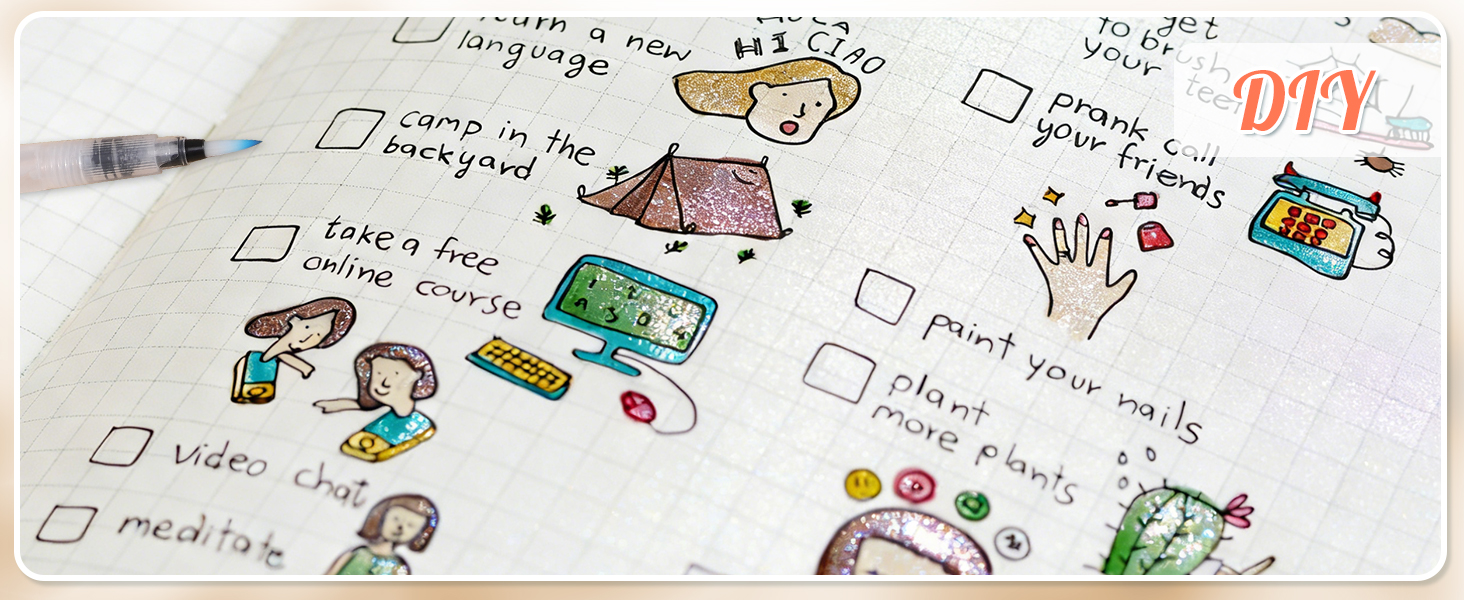 learn a new
language
HI CIAO
camp in the
backyard
take a free
online course
video chat
meditate
get
to brush
your teeth
prank call
your friends
paint your nails
plant
more plants
DIY